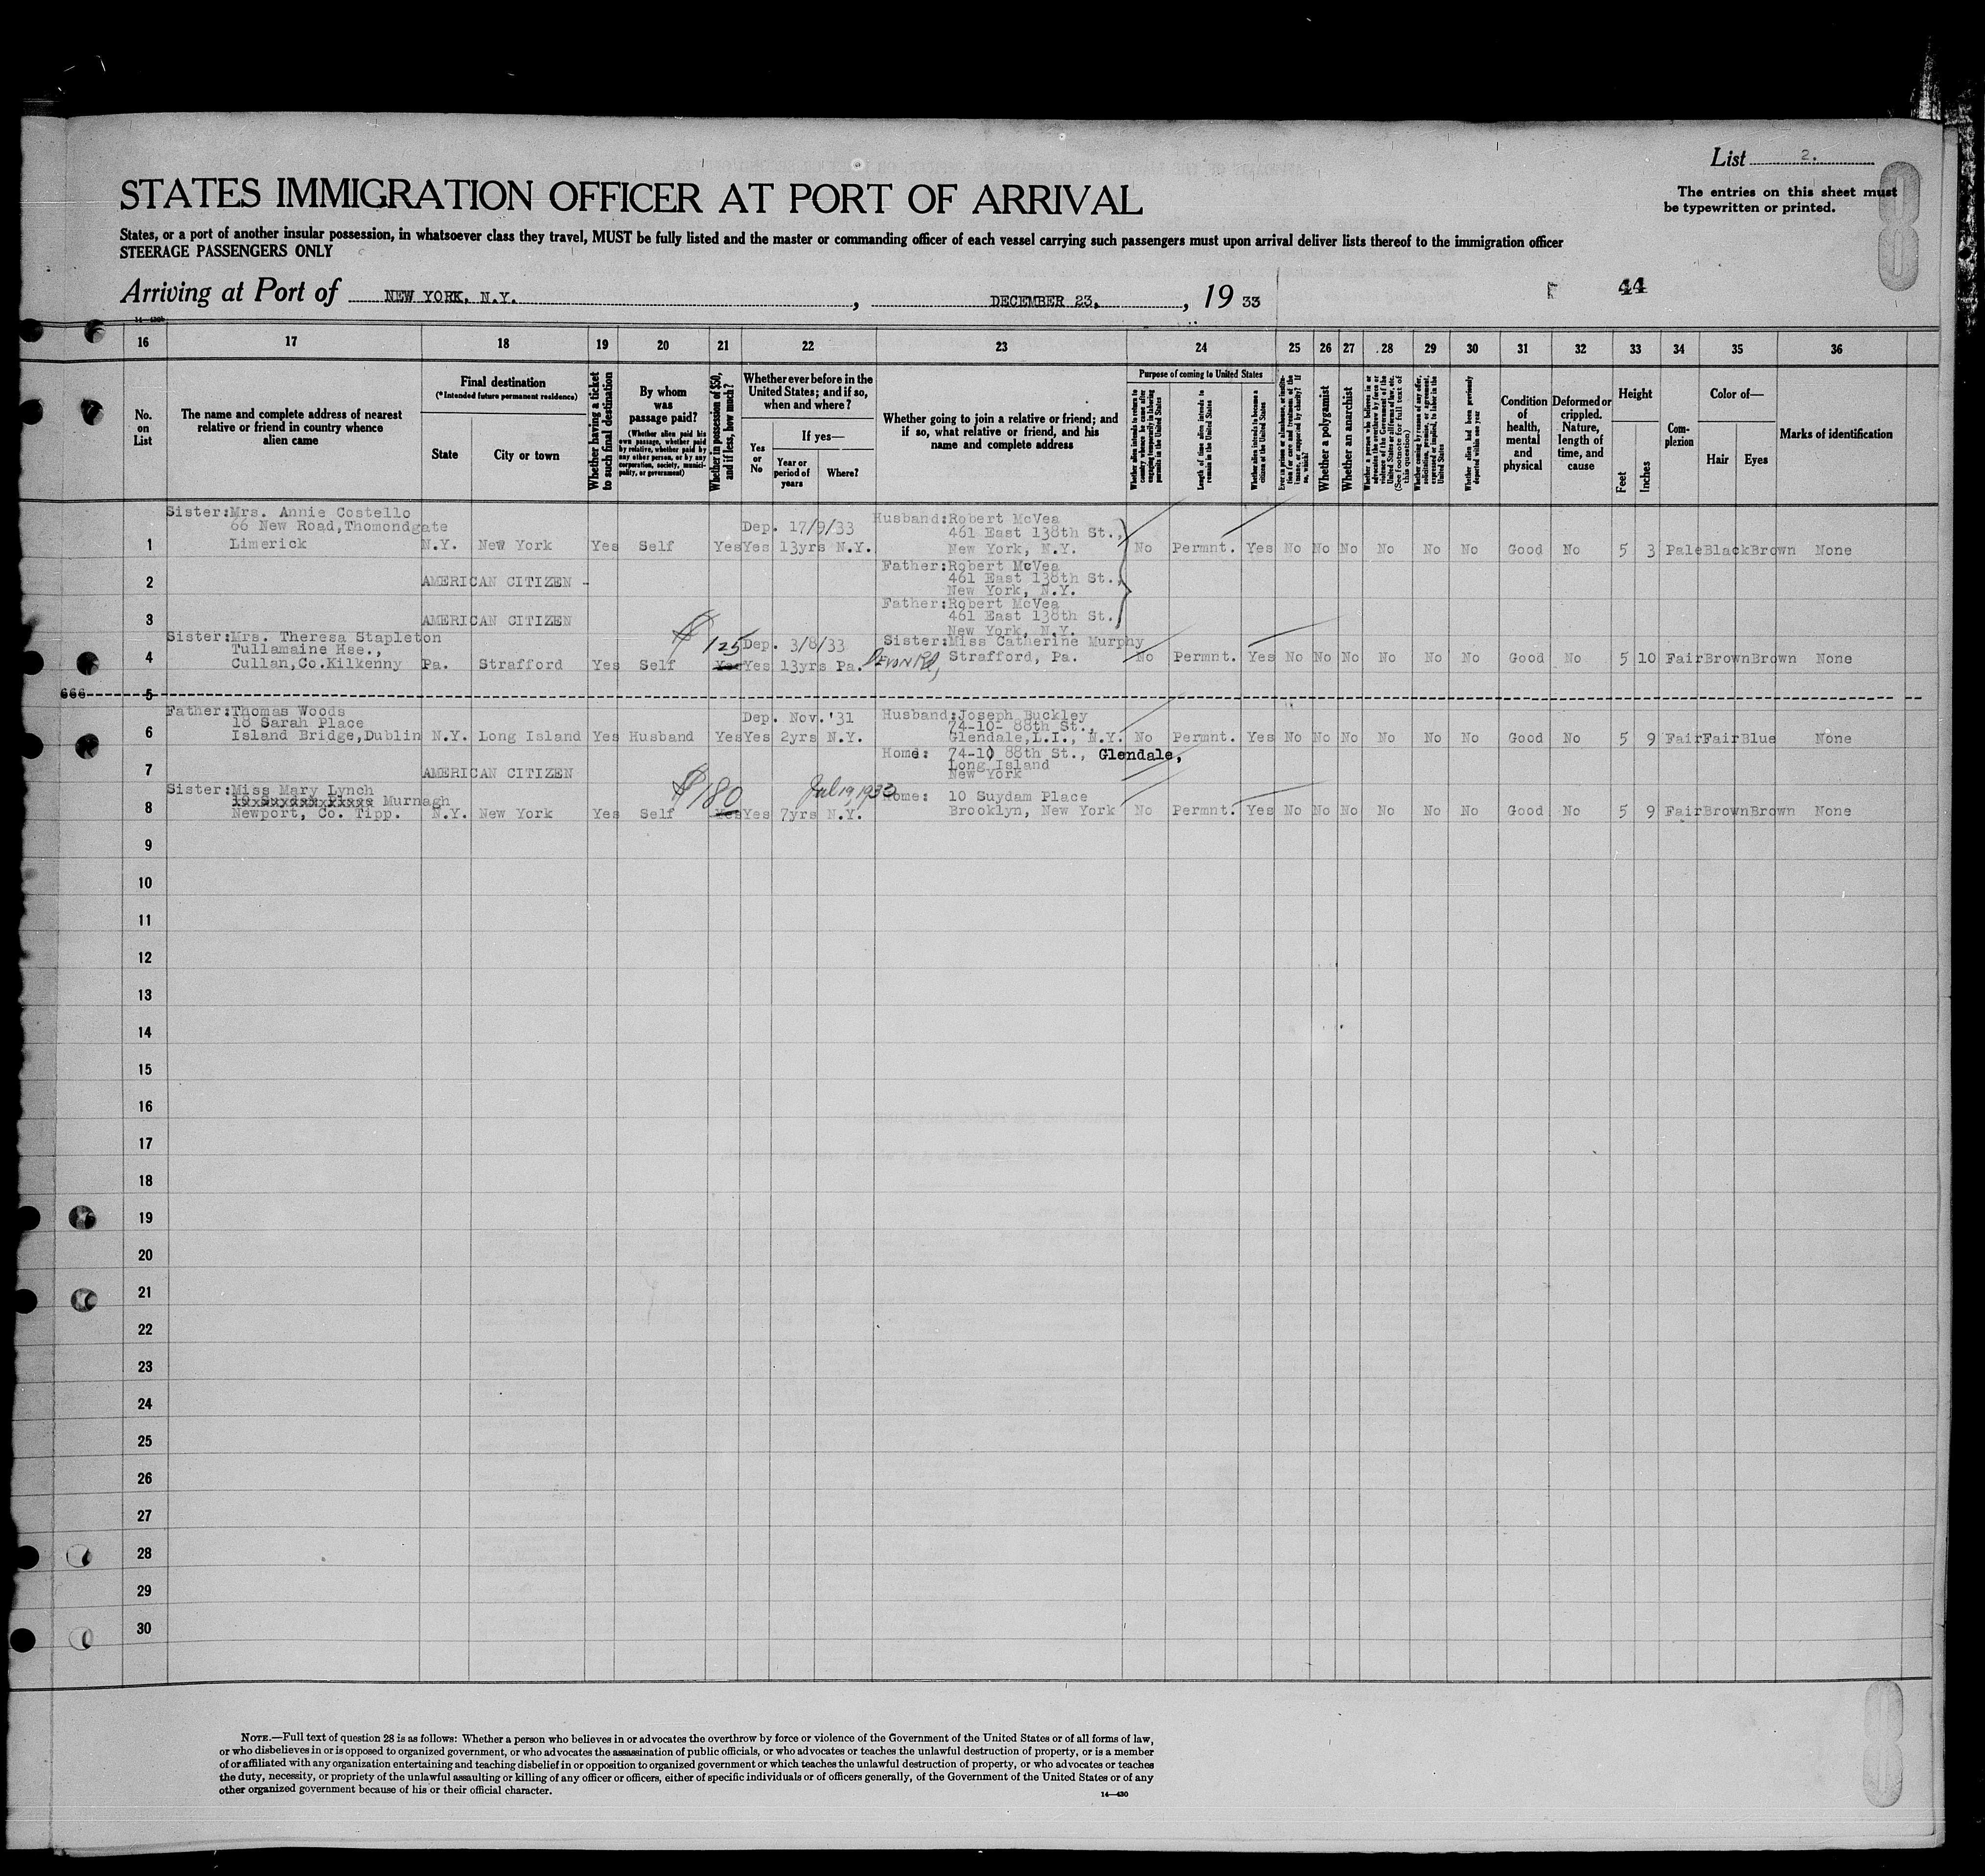 List 2.
The entries on this sheet must
be typewritten or printed.
STATES IMMIGRATION OFFICER AT PORT OF ARRIVAL
States, or a port of another insular possession, in whatsoever class they travel, MUST be fully listed and the master or commanding officer of each vessel carrying such passengers must upon arrival deliver lists thereof to the immigration officer
STEERAGE PASSENGERS ONLY
Arriving at Port of NEW YORK, N.Y., DECEMBER 23, 19 33
44
16 17 18 19 20 21 22 23 24 25 26 27 28 29 30 31 32 33 34 35 36
No. on List
The name and complete address of nearest relative or friend in country whence alien came
Final destination
(*Intended future permanent residence)
State
City or town
Whether having a ticket to such final destination
By whom was passage paid?
(Whether alien paid his own passage, whether paid by relative, whether paid by any other person, or by any corporation, society, municipality, or government)
Whether in possession of $50, and if less, how much?
Whether ever before in the United States; and if so, when and where?
Yes or No
If yes—
Year or period of years
Where?
Whether going to join a relative or friend; and if so, what relative or friend, and his name and complete address
Purpose of coming to United States
Whether alien intends to return to country whence he came after engaging temporarily in laboring pursuits in the United States
Length of time alien intends to remain in the United States
Whether alien intends to become a citizen of the United States
Whether a polygamist
Whether an anarchist
Whether alien had been previously deported within one year
Condition of health, mental and physical
Deformed or crippled. Nature, length of time, and cause
Height
Feet
Inches
Complexion
Color of—
Hair
Eyes
Marks of identification
Sister:Mrs. Annie Costello
66 New Road,Thomondgate
Dep. 17/9/33
Husband:Robert McVea
461 East 138th St.,
1 Limerick N.Y. New York Yes Self Yes Yes 13yrs N.Y. New York, N.Y. No Permnt. Yes No No No No No No Good No 5 3 Pale Black Brown None
Father:Robert McVea
2 AMERICAN CITIZEN - 461 East 138th St.,
New York, N.Y.
Father:Robert McVea
3 AMERICAN CITIZEN 461 East 138th St.,
New York, N.Y.
Sister:Mrs. Theresa Stapleton
Tullamaine Hse.,
$125 Dep. 3/8/33
Sister:Miss Catherine Murphy
Devon Rd,
4 Cullan,Co.Kilkenny Pa. Strafford Yes Self Yes Yes 13yrs Pa. Strafford, Pa. No Permnt. Yes No No No No No No Good No 5 10 Fair Brown Brown None
666 5
Father:Thomas Woods
18 Sarah Place
Dep. Nov. '31
Husband:Joseph Buckley
74-10- 88th St.,
6 Island Bridge,Dublin N.Y. Long Island Yes Husband Yes Yes 2yrs N.Y. Glendale,L.I., N.Y. No Permnt. Yes No No No No No No Good No 5 9 Fair Fair Blue None
Home: 74-10 88th St., Glendale,
7 AMERICAN CITIZEN Long Island
New York
Sister:Miss Mary Lynch
Murnagh
$180 Jul 19, 1933
Home: 10 Suydam Place
8 Newport, Co. Tipp. N.Y. New York Yes Self Yes Yes 7yrs N.Y. Brooklyn, New York No Permnt. Yes No No No No No No Good No 5 9 Fair Brown Brown None
9
10
11
12
13
14
15
16
17
18
19
20
21
22
23
24
25
26
27
28
29
30
NOTE.—Full text of question 28 is as follows: Whether a person who believes in or advocates the overthrow by force or violence of the Government of the United States or of all forms of law,
or who disbelieves in or is opposed to organized government, or who advocates the assassination of public officials, or who advocates or teaches the unlawful destruction of property, or is a member
of or affiliated with any organization entertaining and teaching disbelief in or opposition to organized government or which teaches the unlawful destruction of property, or who advocates or teaches
the duty, necessity, or propriety of the unlawful assaulting or killing of any officer or officers, either of specific individuals or of officers generally, of the Government of the United States or of any
other organized government because of his or their official character.
14—430